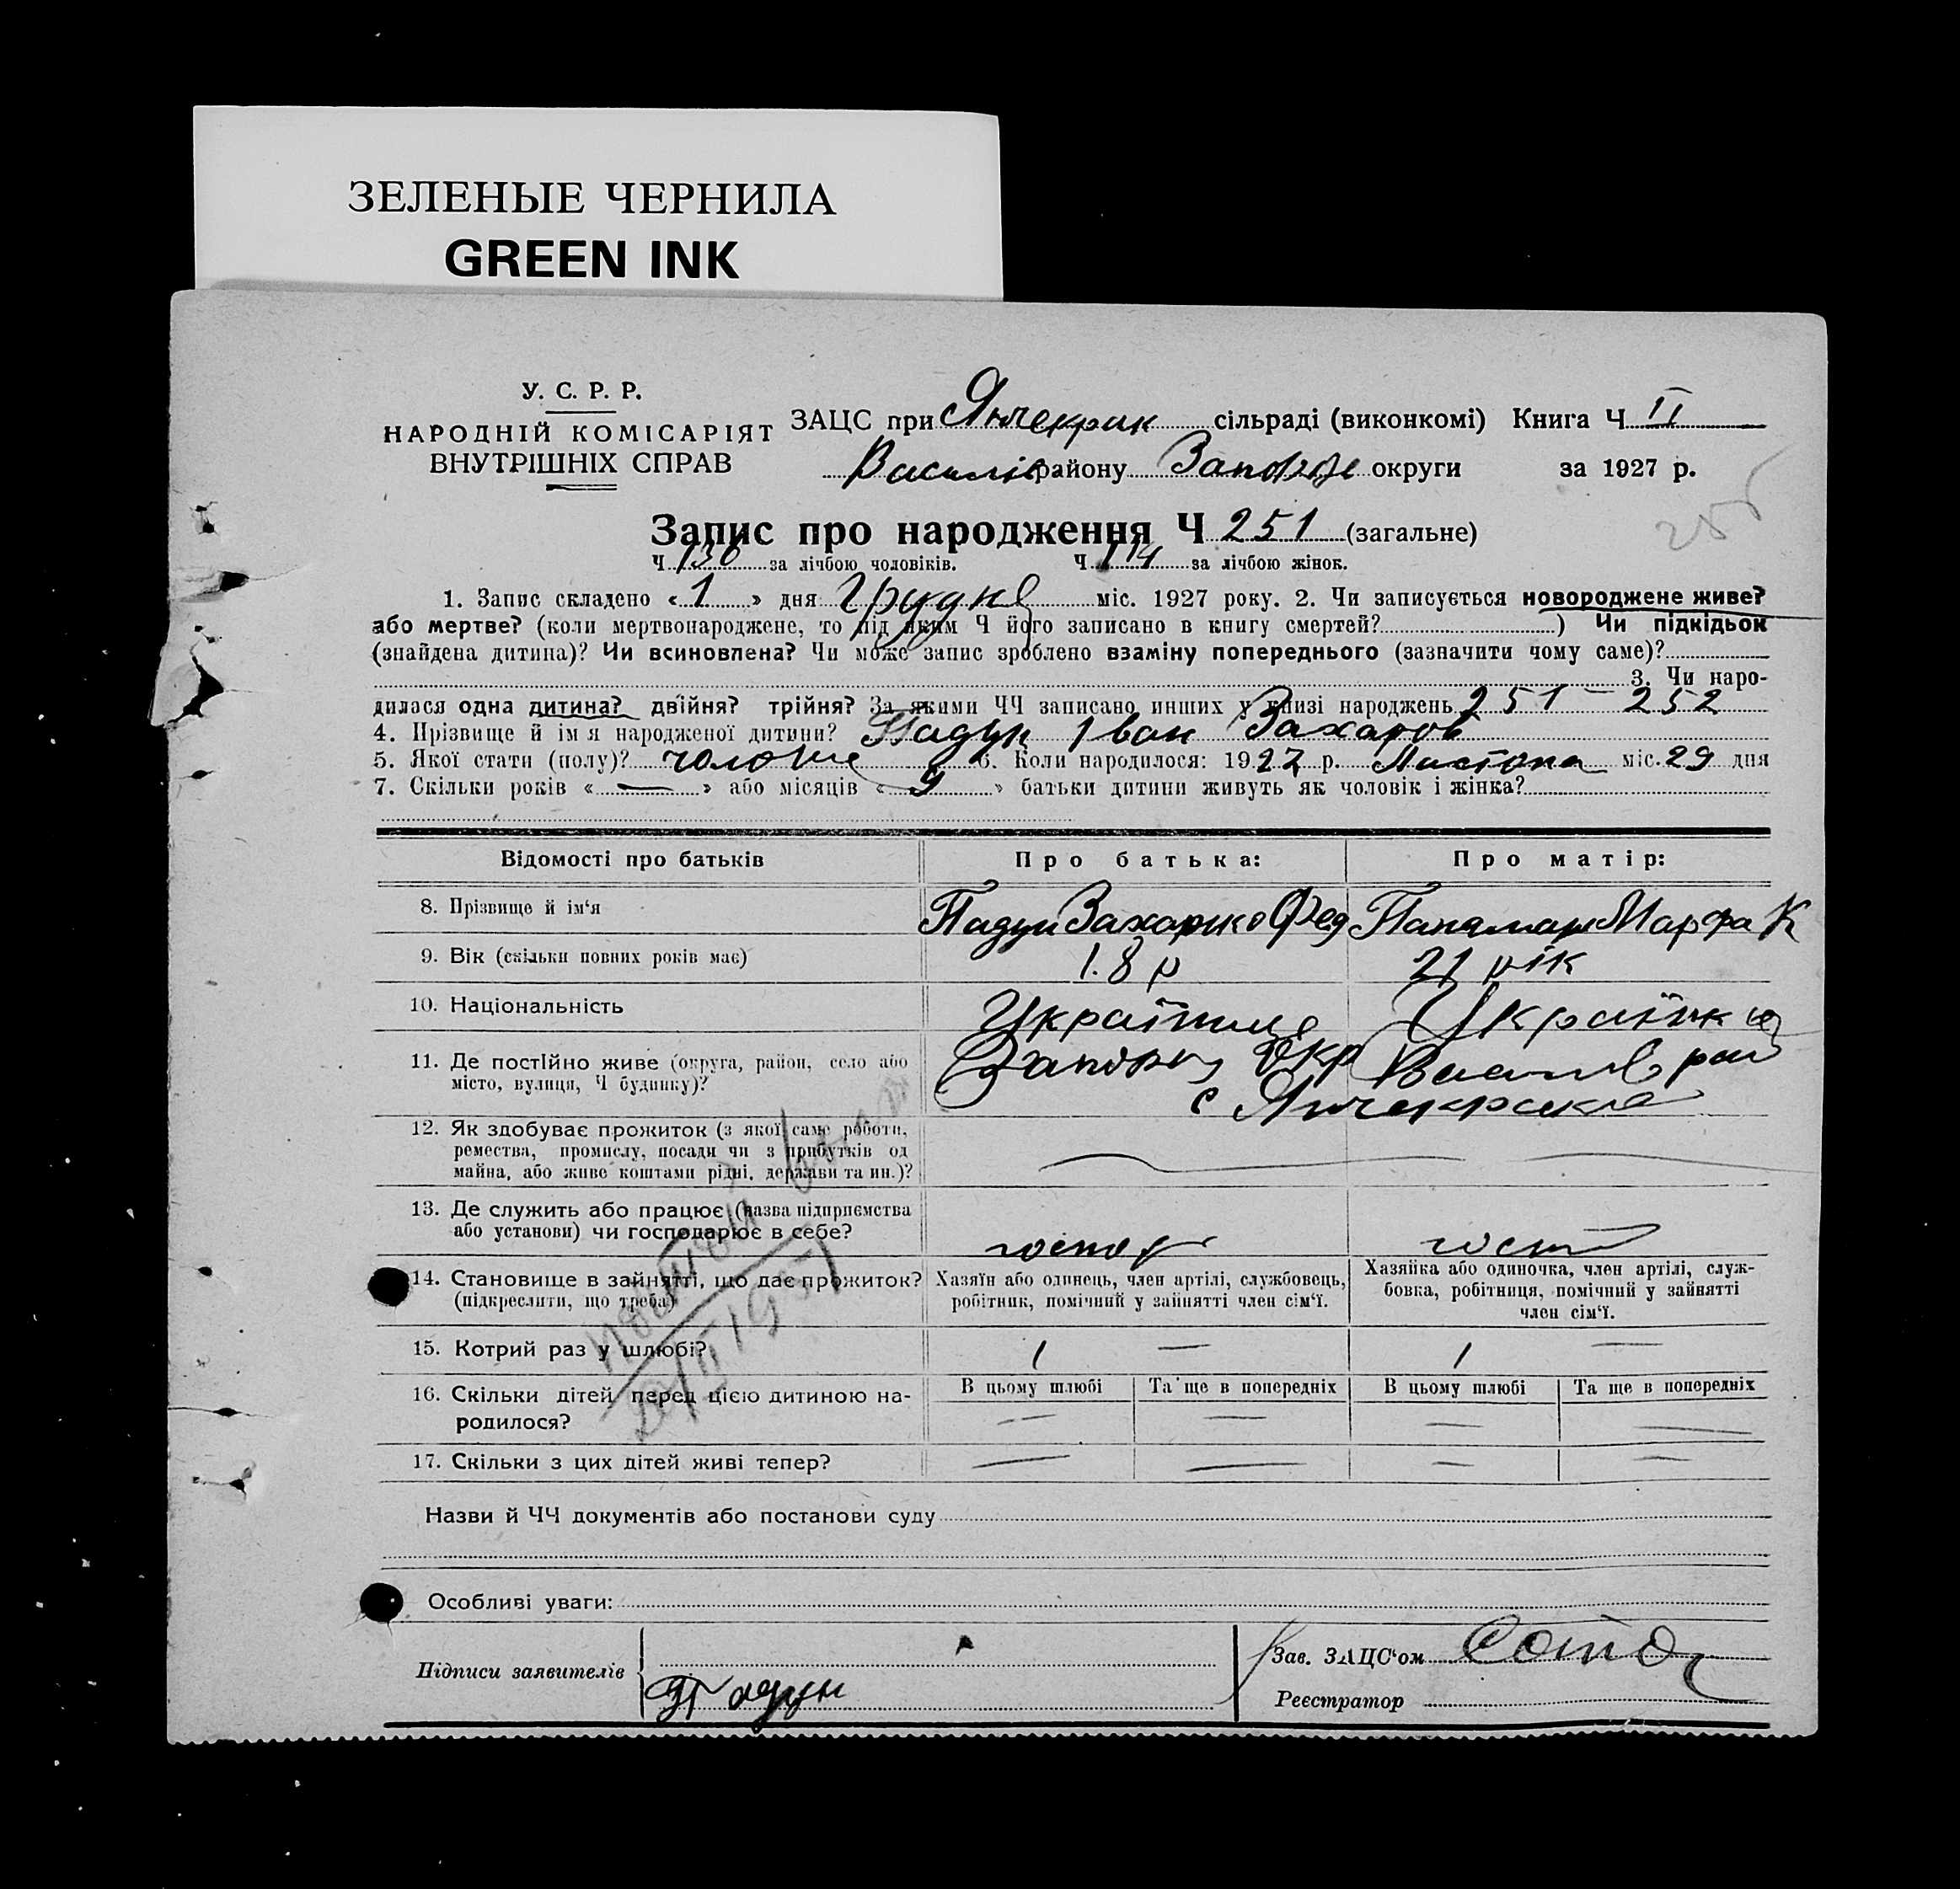 ЗЕЛЕНЫЕ ЧЕРНИЛА
GREEN INK
У. С. Р. Р.
НАРОДНІЙ КОМІСАРІЯТ
ВНУТРІШНІХ СПРАВ
ЗАЦС при Янчекрик сільраді (виконкомі) Книга Ч II
Василів району округи за 1927 р.
255
Запис про народження Ч 251 (загальне)
Ч 136 за лічбою чоловіків. Ч 114 за лічбою жінок.
1. Запис складено «1» дня Грудня міс. 1927 року. 2. Чи записується новороджене живе?
або мертве? (коли мертвонароджене, то під яким Ч його записано в книгу смертей? ) Чи підкідьок
(знайдена дитина)? Чи всиновлена? Чи може запис зроблено взаміну попереднього (зазначити чому саме)?
3. Чи наро-
дилася одна дитина? двійня? трійня? За якими ЧЧ записано инших у книзі народжень 251 - 252
4. Прізвище й ім я народженої дитини? Падун Іван Захаров
5. Якої стати (полу)? чолов 6. Коли народилося: 1927 р. Листопа міс. 29 дня
7. Скільки років « — » або місяців « 9 » батьки дитини живуть як чоловік і жінка?
Відомості про батьків Про батька: Про матір:
8. Прізвище й ім‘я Падун Захарко Фед Марфа К
9. Вік (скільки повних років має) 18 р 21 рік
10. Національність Українець Українка
11. Де постійно живе (округа, район, село або
місто, вулиця, Ч будинку)? Окр Василів рай
с Янчекраке
12. Як здобуває прожиток (з якої саме роботи,
ремества, промислу, посади чи з прибутків од
майна, або живе коштами рідні, держави та ин.)?
13. Де служить або працює (назва підприємства
або установи) чи господарює в себе? господ госп
14. Становище в зайнятті, що дає прожиток?
(підкреслити, що треба)
Хазяїн або одинець, член артілі, службовець,
робітник, помічний у зайнятті член сім‘ї.
Хазяйка або одиночка, член артілі, служ-
бовка, робітниця, помічний у зайнятті
член сім‘ї.
15. Котрий раз у шлюбі? 1 — 1 —
16. Скільки дітей перед цією дитиною на-
родилося?
В цьому шлюбі Та ще в попередніх В цьому шлюбі Та ще в попередніх
— — — —
17. Скільки з цих дітей живі тепер? — — — —
Назви й ЧЧ документів або постанови суду
Особливі уваги:
Підписи заявителів Падун
Зав. ЗАЦС‘ом
Реєстратор